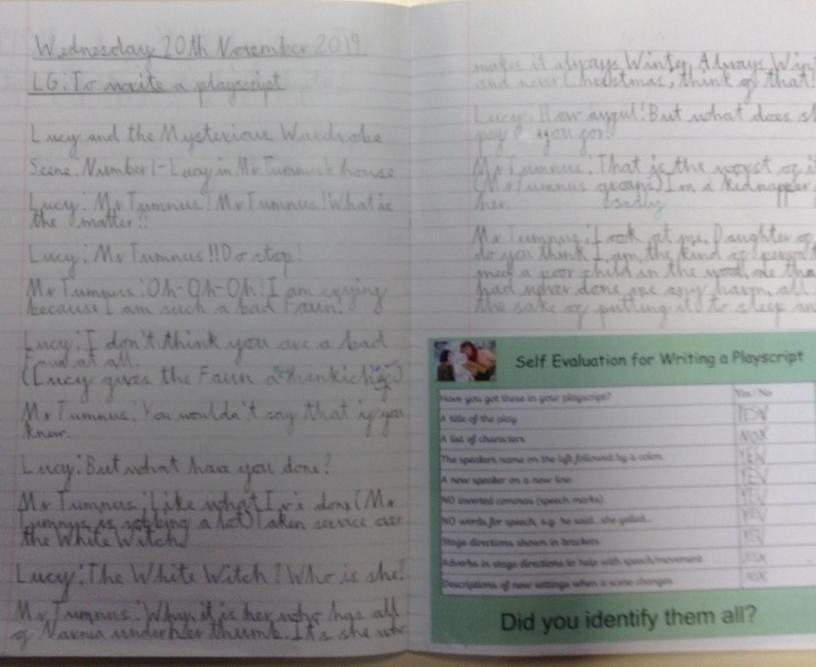 Wednesday 20th November 2019
LG: To write a playscript
Lucy and the Mysterious Wardrobe
Scene Number 1 - Lucy in Mr Tumnus's house
Lucy: Mr Tumnus! Mr Tumnus! What is
the matter!!
Lucy: Mr Tumnus!! Do stop!
Mr Tumnus: Oh-Oh-Oh! I am crying
because I am such a bad Faun!
Lucy: I don't think you are a bad
Faun at all.
(Lucy gives the Faun a hankichif)
Mr Tumnus: You wouldn't say that if you
knew.
Lucy: But what have you done?
Mr Tumnus: Like what I've done (Mr
Tumnus is sobbing a lot) Taken service over
the White Witch.
Lucy: The White Witch? Who is she?
Mr Tumnus: Why it is her who has all
of Narnia under her thumb. It's she who
makes it always Winter. Always Win
and never Christmas, think of that!
Lucy: How awful! But what does sh
pay you for
Mr Tumnus: That is the worst of it
(Mr Tumnus groans) I'm a Kidnapper
her. sadly
Mr Tumnus: Look at me, Daughter of
do you think I am the kind of
meet a poor child in the wood, one tha
had never done me any harm, all
the sake of putting it to sleep an
Self Evaluation for Writing a Playscript
Have you got these in your playscript? Yes / No
A title of the play YES
A list of characters NO
The speakers name on the left followed by a colon YES
A new speaker on a new line YES
NO inverted commas (speech marks) YES
NO words for speech, e.g. he said.. she yelled... YES
Stage directions shown in brackets YES
Adverbs in stage directions to help with speech/movement
Descriptions of new settings when a scene changes
Did you identify them all?